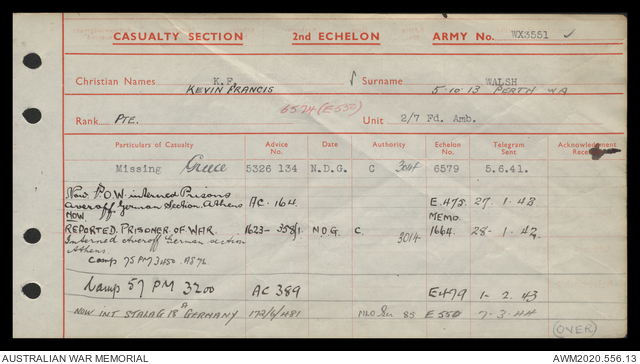 CASUALTY SECTION 2nd ECHELON ARMY No. WX3551
Christian Names K.F. Surname WALSH
KEVIN FRANCIS 5-10-13 PERTH WA
6574 (E550)
Rank PTE. Unit 2/7 Fd. Amb.
Particulars of Casualty Advice No. Date Authority Echelon No. Telegram Sent Acknowledgment Rece
Missing Greece 5326 134 N.D.G. C 3014 6579 5.6.41.
Now P.O.W. interned Prisons
Averoff German Section Athens AC. 164. E.475. 27. 1. 43
NOW. MEMO.
REPORTED PRISONER OF WAR. 1623-358/1 N.D.G. C. 3014 1664. 28. 1. 42
Interned Averoff German section
Athens
Camp 75 PM 3450. A876
Camp 57 PM 3200 AC 389 E479 1. 2. 43
NOW INT STALAG 18A GERMANY 172/6/481 85 E550 7.3.44
(OVER)
AUSTRALIAN WAR MEMORIAL AWM2020.556.13